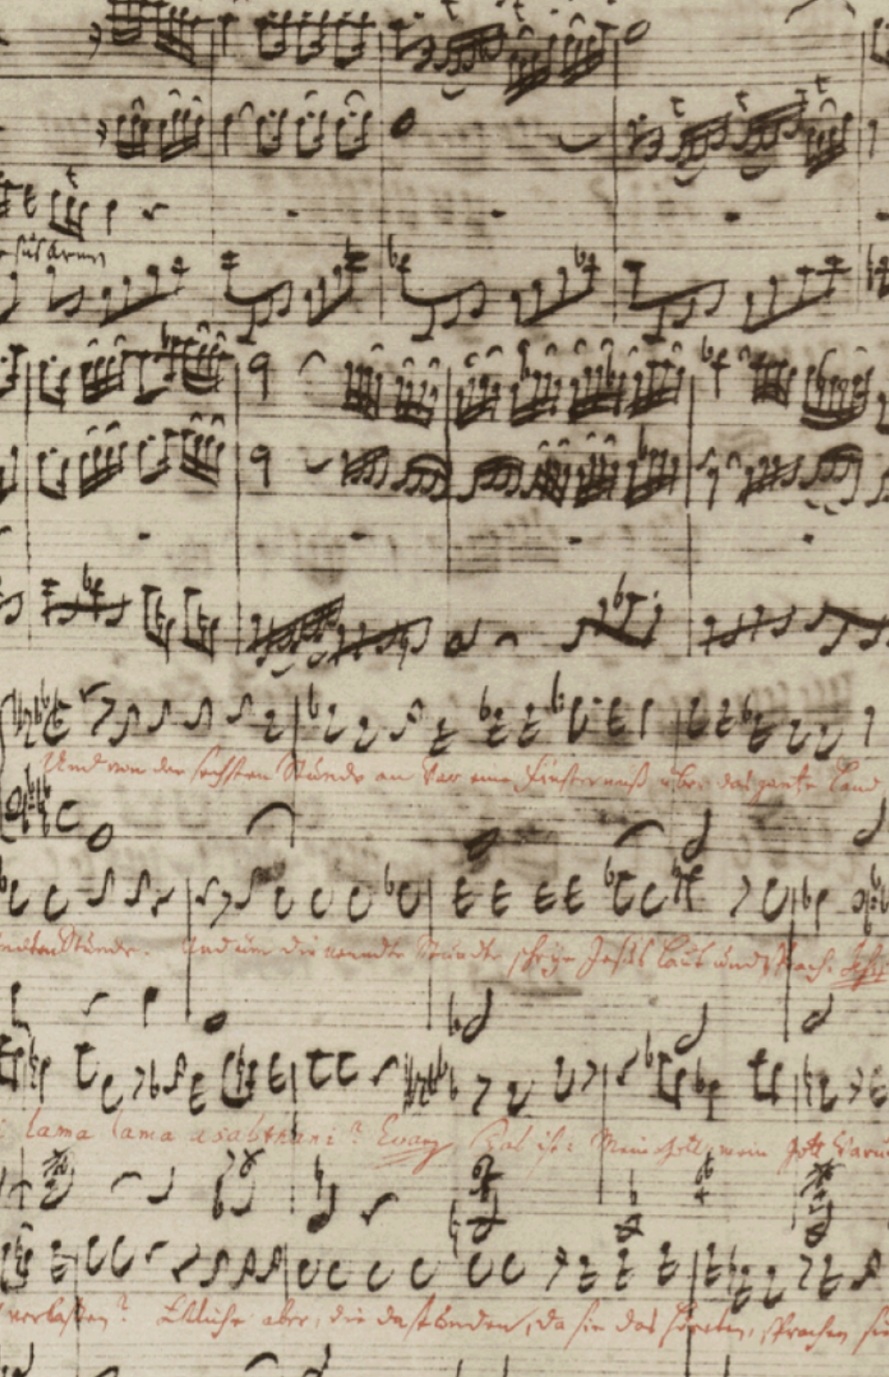 in Jesus Armen
Und von der sechsten Stunde an war eine Finsterniß über das gantze Land
neundten Stunde. Und üm die neundte Stunde schrye Jesus laut und sprach:
lama lama asabthani? Evang. Das ist: Mein Gott, mein Gott warum
verlaßen? Etliche aber, die da stunden, da sie das höreten, sprachen sie